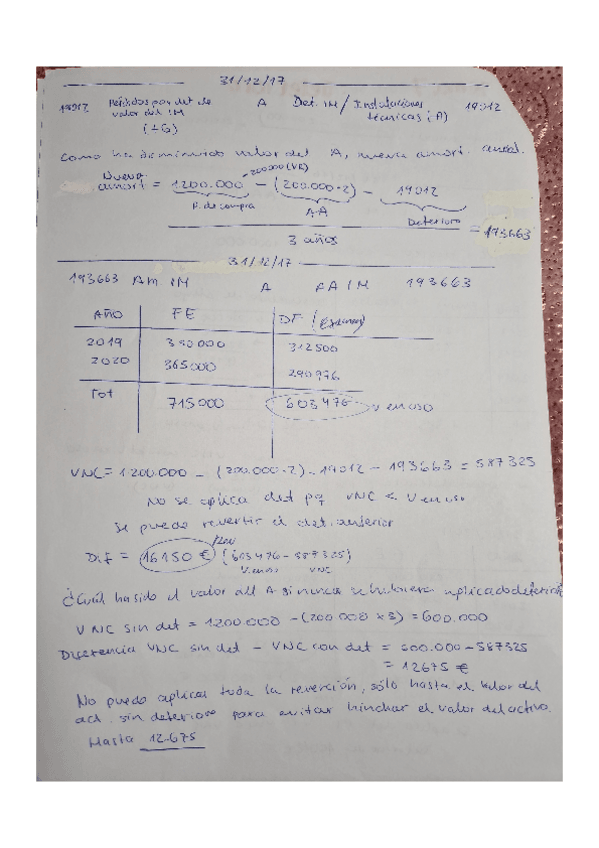 31/12/17
19012 Pérdidas por det de valor del IM (+G) A Det. IM / Instalaciones técnicas (A) 19012
Como ha disminuido valor del A, nueva amort. anual.
-200000 (VR)
Nueva amort = 1200.000 - (200.000·2) - 19012
P. de compra AA Deterioro
= 193663
3 años
31/12/17
193663 Am. IM A AA IM 193663
AÑO FE DF
2019 350000 312500
2020 365000 290976
Tot 715000 603476 → V en uso
VNC = 1200.000 - (200.000·2) - 19012 - 193663 = 587325
No se aplica det pq VNC < V en uso
Se puede revertir el det. anterior
Dif = 16150 € (603476 - 587325)
V en uso VNC
¿Cuál ha sido el valor del A si nunca se hubiera aplicado deterioro
VNC sin det = 1200000 - (200 000 x 3) = 600.000
Diferencia VNC sin det - VNC con det = 600.000 - 587325
= 12675 €
No puedo aplicar toda la reversión, sólo hasta el valor del
act. sin deterioro para evitar hinchar el valor del activo.
Hasta 12.675